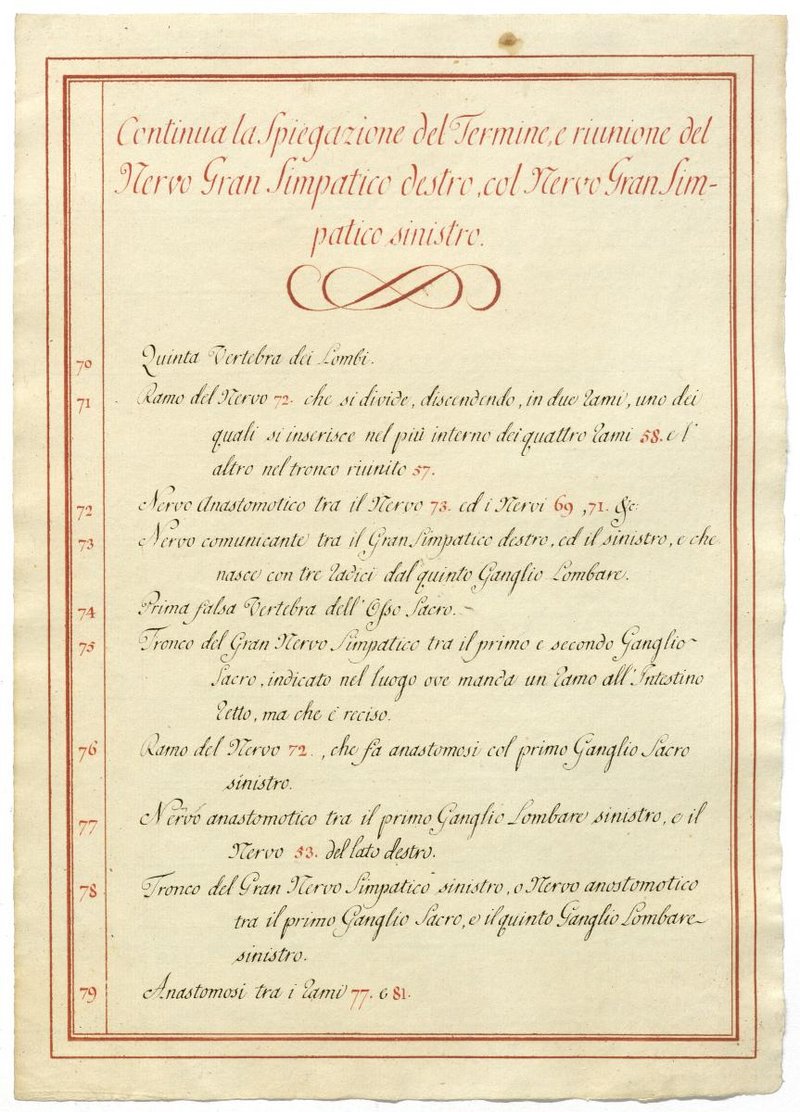 Continua la Spiegazione del Termine, e riunione del
Nervo Gran Simpatico destro, col Nervo Gran Sim-
patico sinistro.
70 Quinta Vertebra dei Lombi.
71 Ramo del Nervo 72. che si divide, discendendo, in due rami, uno dei
quali si inserisce nel più interno dei quattro rami 58. e l'
altro nel tronco riunito 57.
72 Nervo Anastomotico tra il Nervo 73. ed i Nervi 69, 71. &c.
73 Nervo comunicante tra il Gran Simpatico destro, ed il sinistro, e che
nasce con tre radici dal quinto Ganglio Lombare.
74 Prima falsa Vertebra dell'Osso Sacro.
75 Tronco del Gran Nervo Simpatico tra il primo e secondo Ganglio
Sacro, indicato nel luogo ove manda un ramo all'Intestino
retto, ma che è reciso.
76 Ramo del Nervo 72., che fa anastomosi col primo Ganglio Sacro
sinistro.
77 Nervo anastomotico tra il primo Ganglio Lombare sinistro, e il
Nervo 53. del lato destro.
78 Tronco del Gran Nervo Simpatico sinistro, o Nervo anostomotico
tra il primo Ganglio Sacro, e il quinto Ganglio Lombare
sinistro.
79 Anastomosi tra i rami 77. e 81.